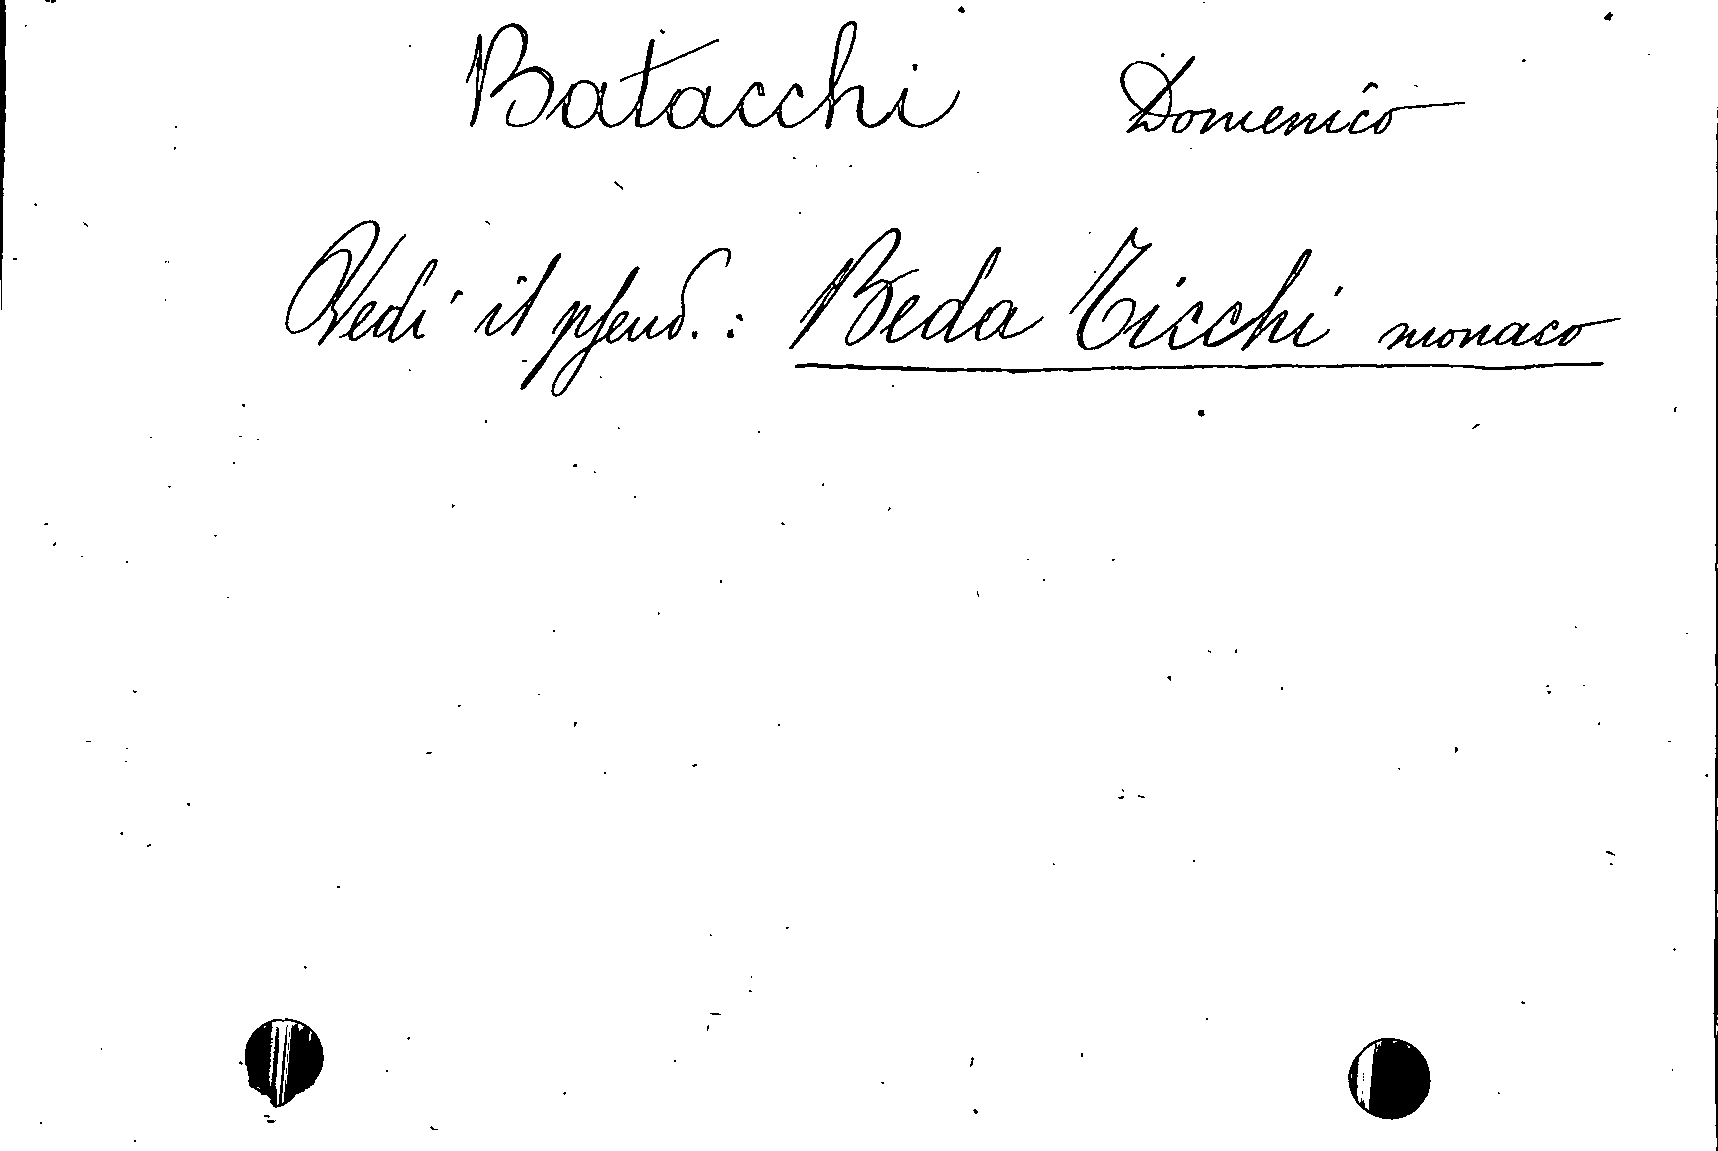 Batacchi Domenico
Vedi il pseud.: Beda Ticchi monaco